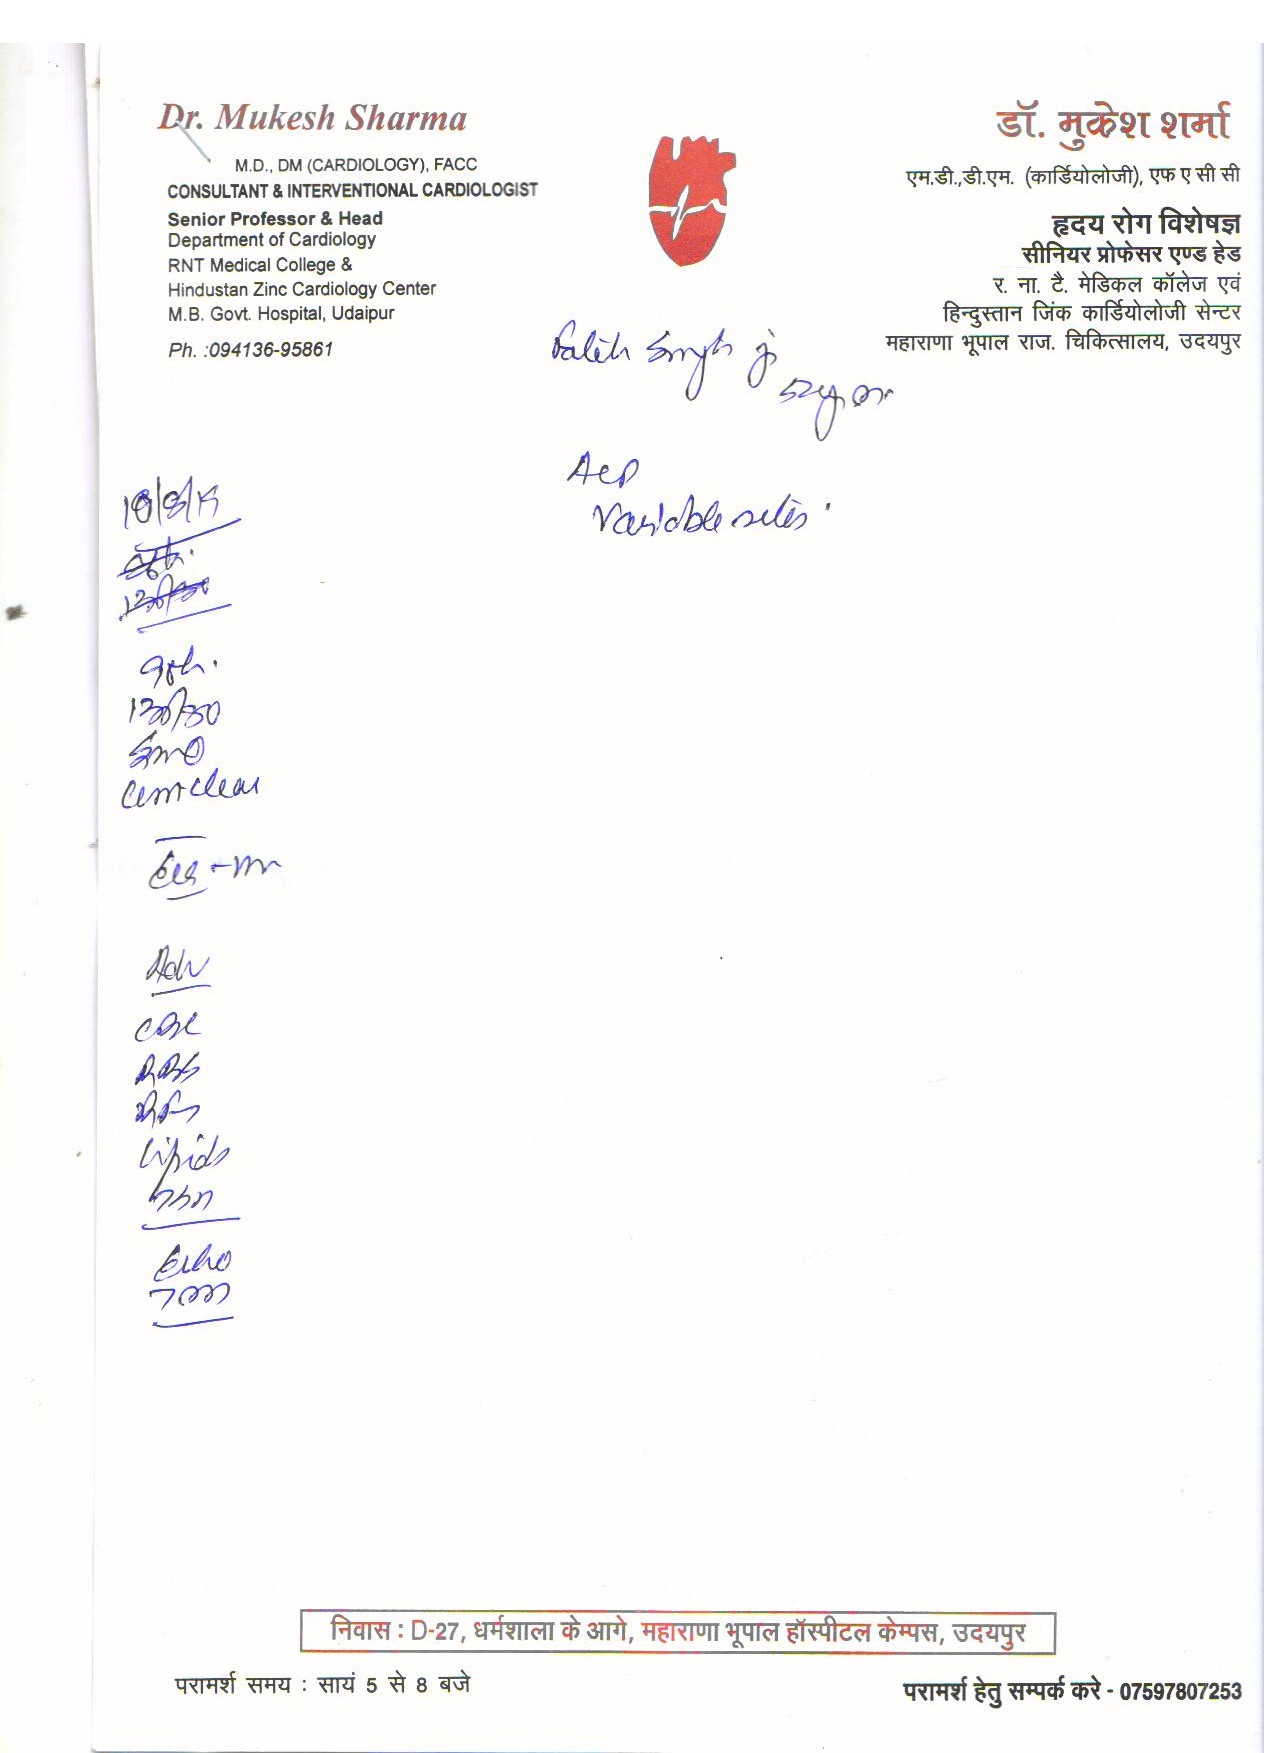 Dr. Mukesh Sharma
M.D., DM (CARDIOLOGY), FACC
CONSULTANT & INTERVENTIONAL CARDIOLOGIST
Senior Professor & Head
Department of Cardiology
RNT Medical College &
Hindustan Zinc Cardiology Center
M.B. Govt. Hospital, Udaipur
Ph. :094136-95861
डॉ. मुकेश शर्मा
एम.डी.,डी.एम. (कार्डियोलोजी), एफ ए सी सी
हृदय रोग विशेषज्ञ
सीनियर प्रोफेसर एण्ड हेड
र. ना. टै. मेडिकल कॉलेज एवं
हिन्दुस्तान जिंक कार्डियोलोजी सेन्टर
महाराणा भूपाल राज. चिकित्सालय, उदयपुर
Singh Ji
52y
Variable
Clear
Adv
CBC
RBS
RFT
Lipids
TSH
Echo
TMT
निवास : D-27, धर्मशाला के आगे, महाराणा भूपाल हॉस्पीटल केम्पस, उदयपुर
परामर्श समय : सायं 5 से 8 बजे
परामर्श हेतु सम्पर्क करे - 07597807253